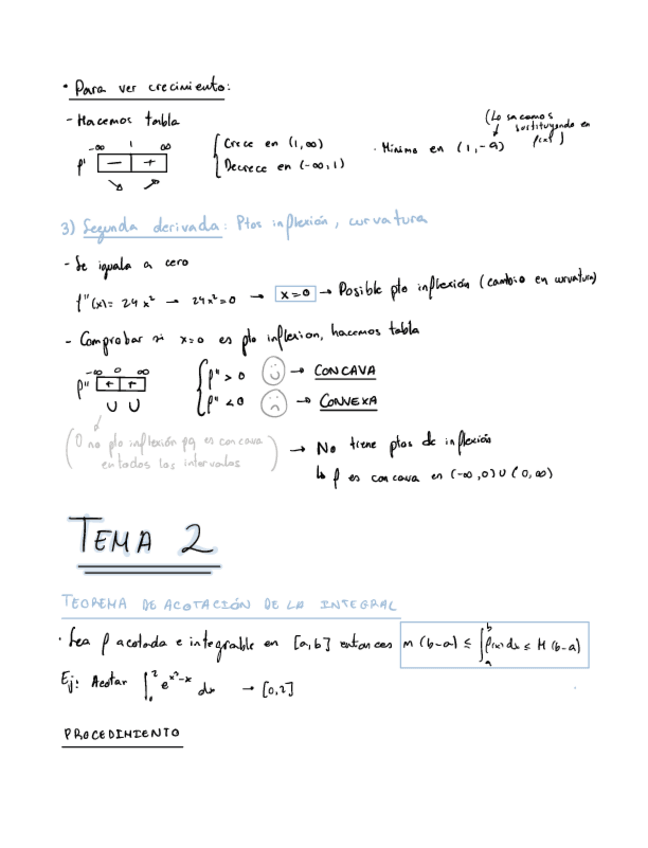 • Para ver crecimiento:
- Hacemos tabla
-∞ 1 ∞
f' - +
Crece en (1,∞)
Decrece en (-∞,1)
· Mínimo en (1,-9)
(Lo sacamos sustituyendo en f(x))
3) Segunda derivada: Ptos inflexión, curvatura
- Se iguala a cero
f''(x)= 24x² → 24x²=0 → x=0 → Posible pto inflexión (cambio en curvatura)
- Comprobar si x=0 es pto inflexion, hacemos tabla
-∞ 0 ∞
f'' + +
∪ ∪
f'' > 0 → CONCAVA
f'' < 0 → CONVEXA
(0 no pto inflexión pq es concava
en todos los intervalos)
→ No tiene ptos de inflexión
↳ f es concava en (-∞,0)∪(0,∞)
TEMA 2
TEOREMA DE ACOTACIÓN DE LA INTEGRAL
· Sea f acotada e integrable en [a,b] entonces m(b-a) ≤ ∫ₐᵇ f(x) dx ≤ M(b-a)
Ej: Acotar ∫₀² e^(x²-x) dx → [0,2]
PROCEDIMIENTO